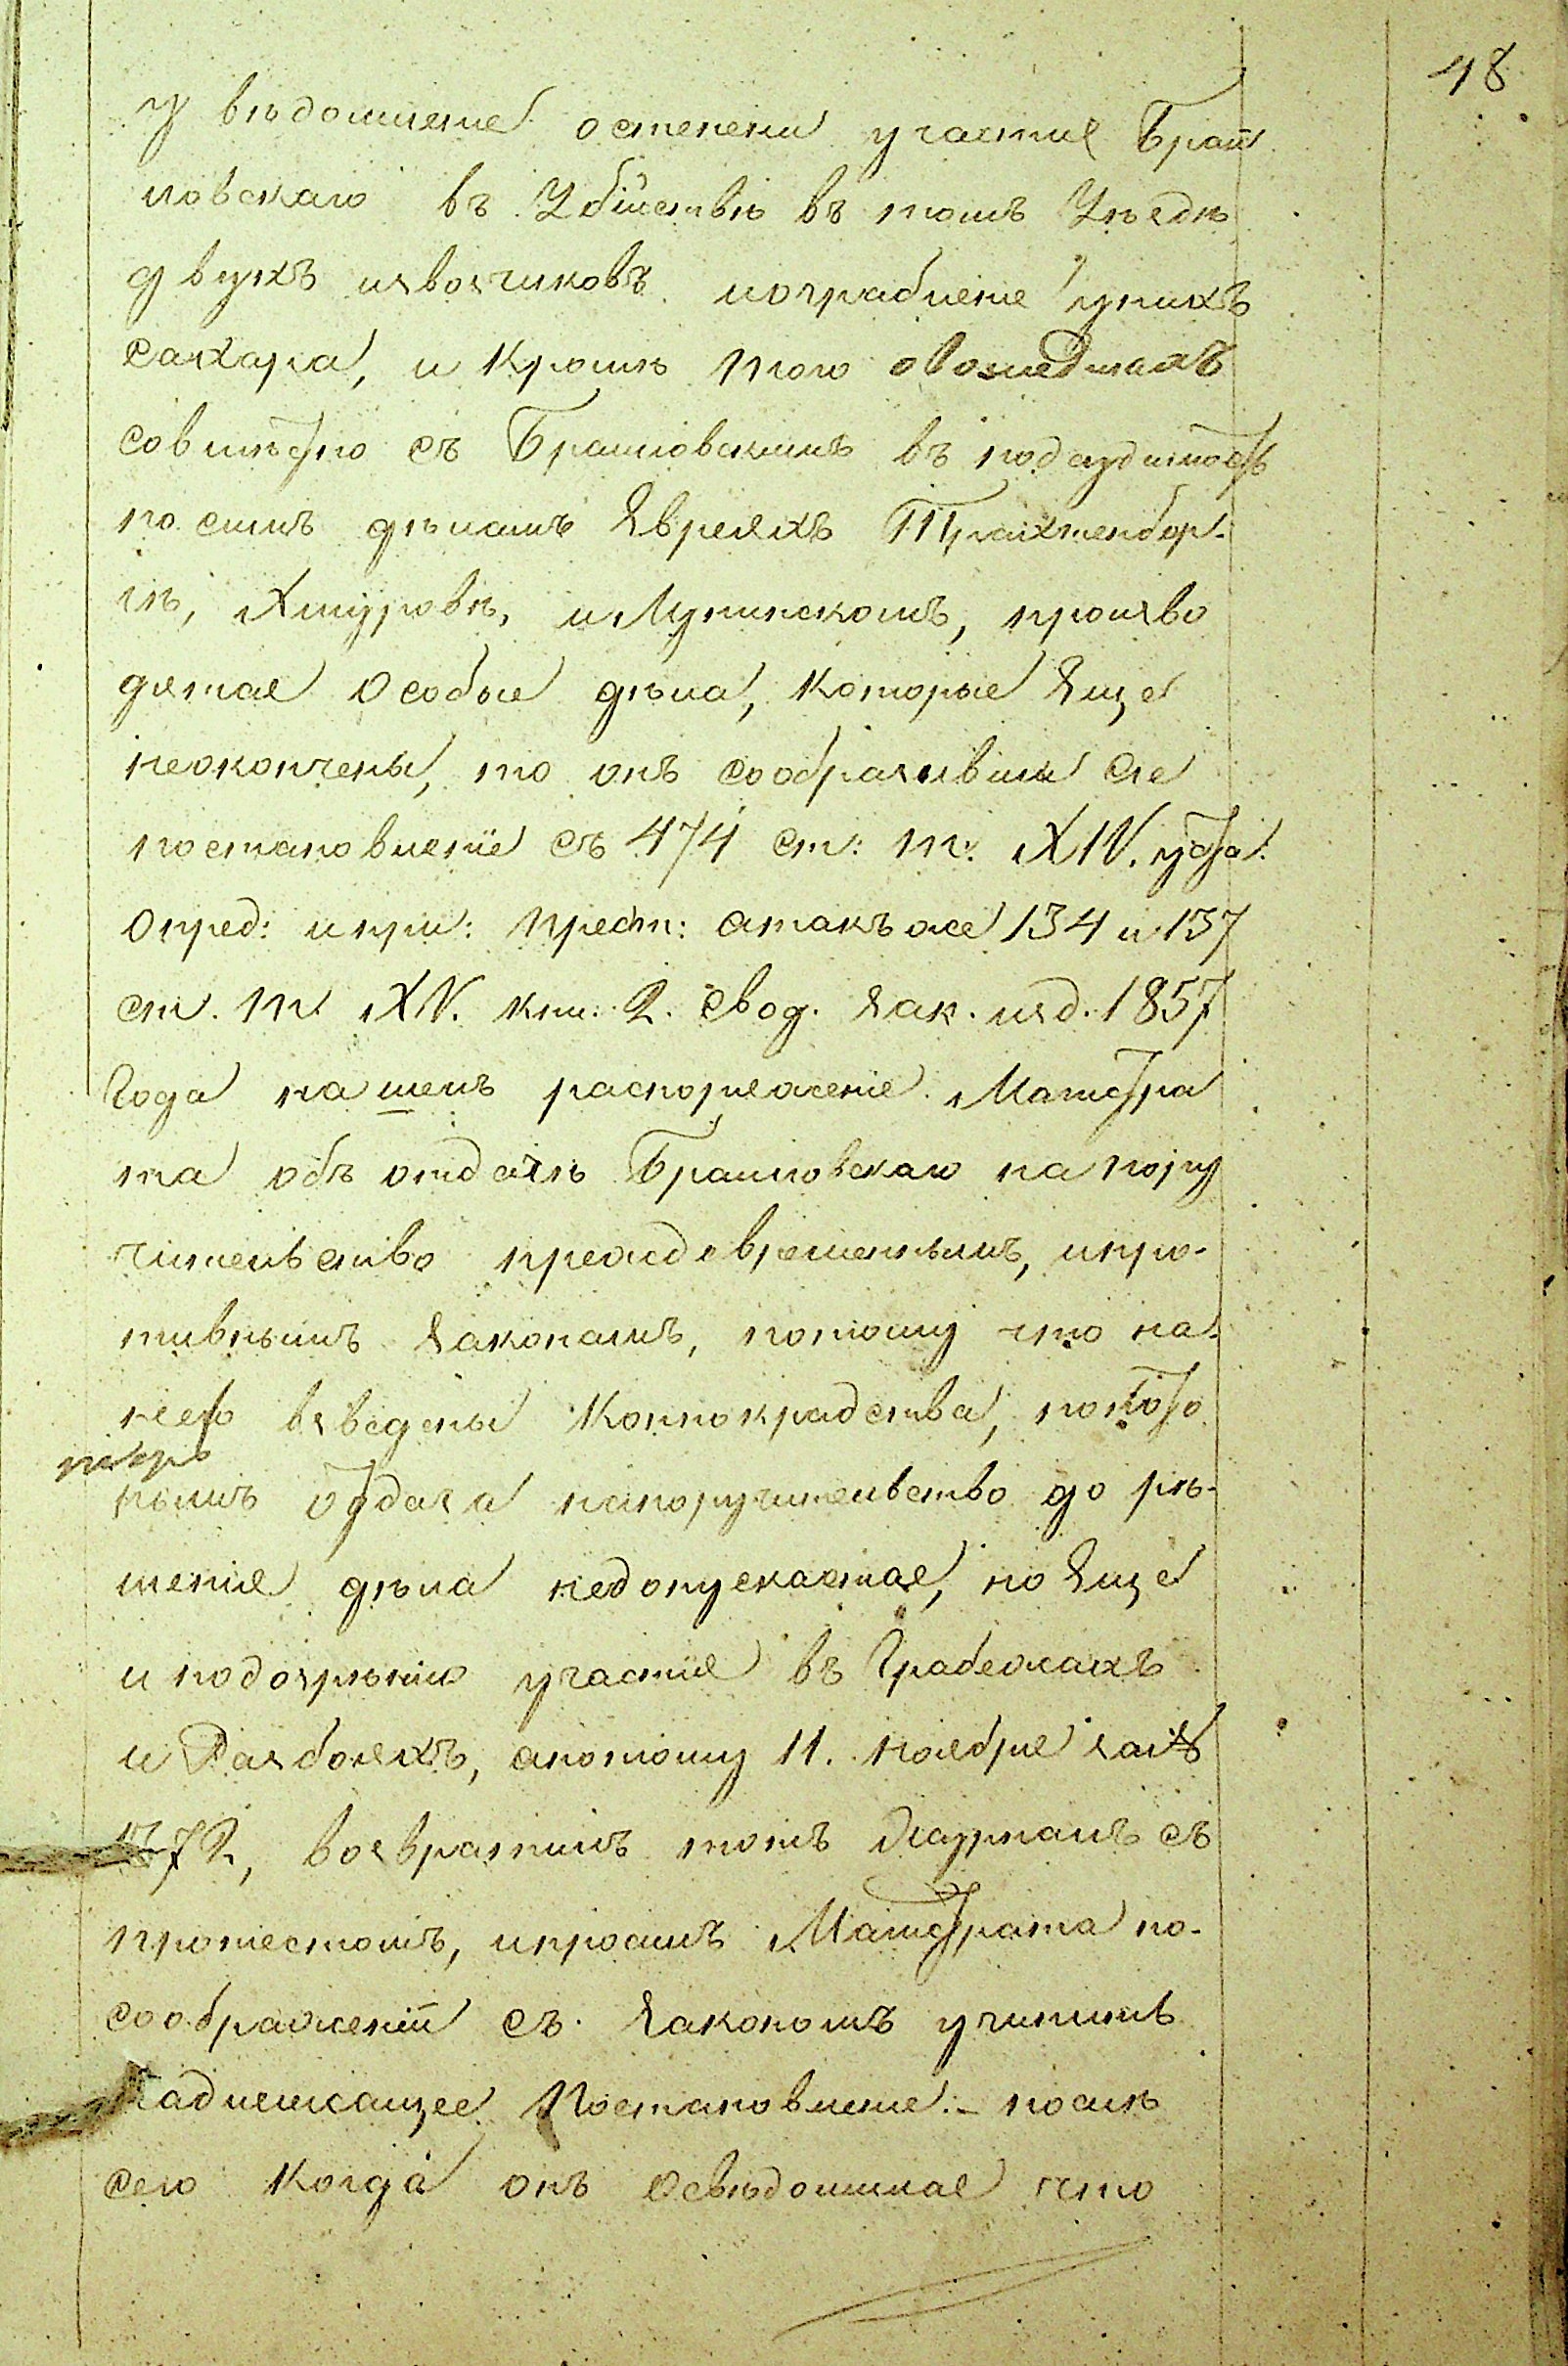 48
уведомленіе о степени участія Браи
ловскаго въ Убійствѣ въ томъ Уѣздѣ
двухъ извозчиковъ и ограбленіе у нихъ
сахара, и Кромѣ того о вошедшихъ
совмѣстно съ Браиловскимъ въ подсудимость
по симъ дѣламъ Евреяхъ Трахтенбер-
гѣ, Хмуровѣ, и Лупинскомъ, произво
дятся Особые дѣла, Которые Еще
неокончены, то онъ сообразивши сіе
постановленіе съ 474 ст: т: XIV. уста:
о пред: и при: прест: атакъ же 134 и 137
ст. т. XV. кни: 2. Свод. Зак. изд. 1857
Года нашелъ распоряженіе Магистра
та объ отдачѣ Браиловскаго на пору
чительство преждевременнымъ, и про-
тивнымъ Законамъ, потому что на
него взведены Конокрадства, по кото
рымъ отдача напоручительство до рѣ-
шенія дѣла недопускается, но Еще
и подозрѣнію участія въ Грабежахъ
и Разбояхъ, апотому 11. Ноября за №
1372, возвратилъ тотъ Журналъ съ
протестомъ, и просилъ Магистрата по-
соображеніи съ Закономъ учинить
надлежащее Постановленіе. – послѣ
сего Когда онъ Освѣдомился что